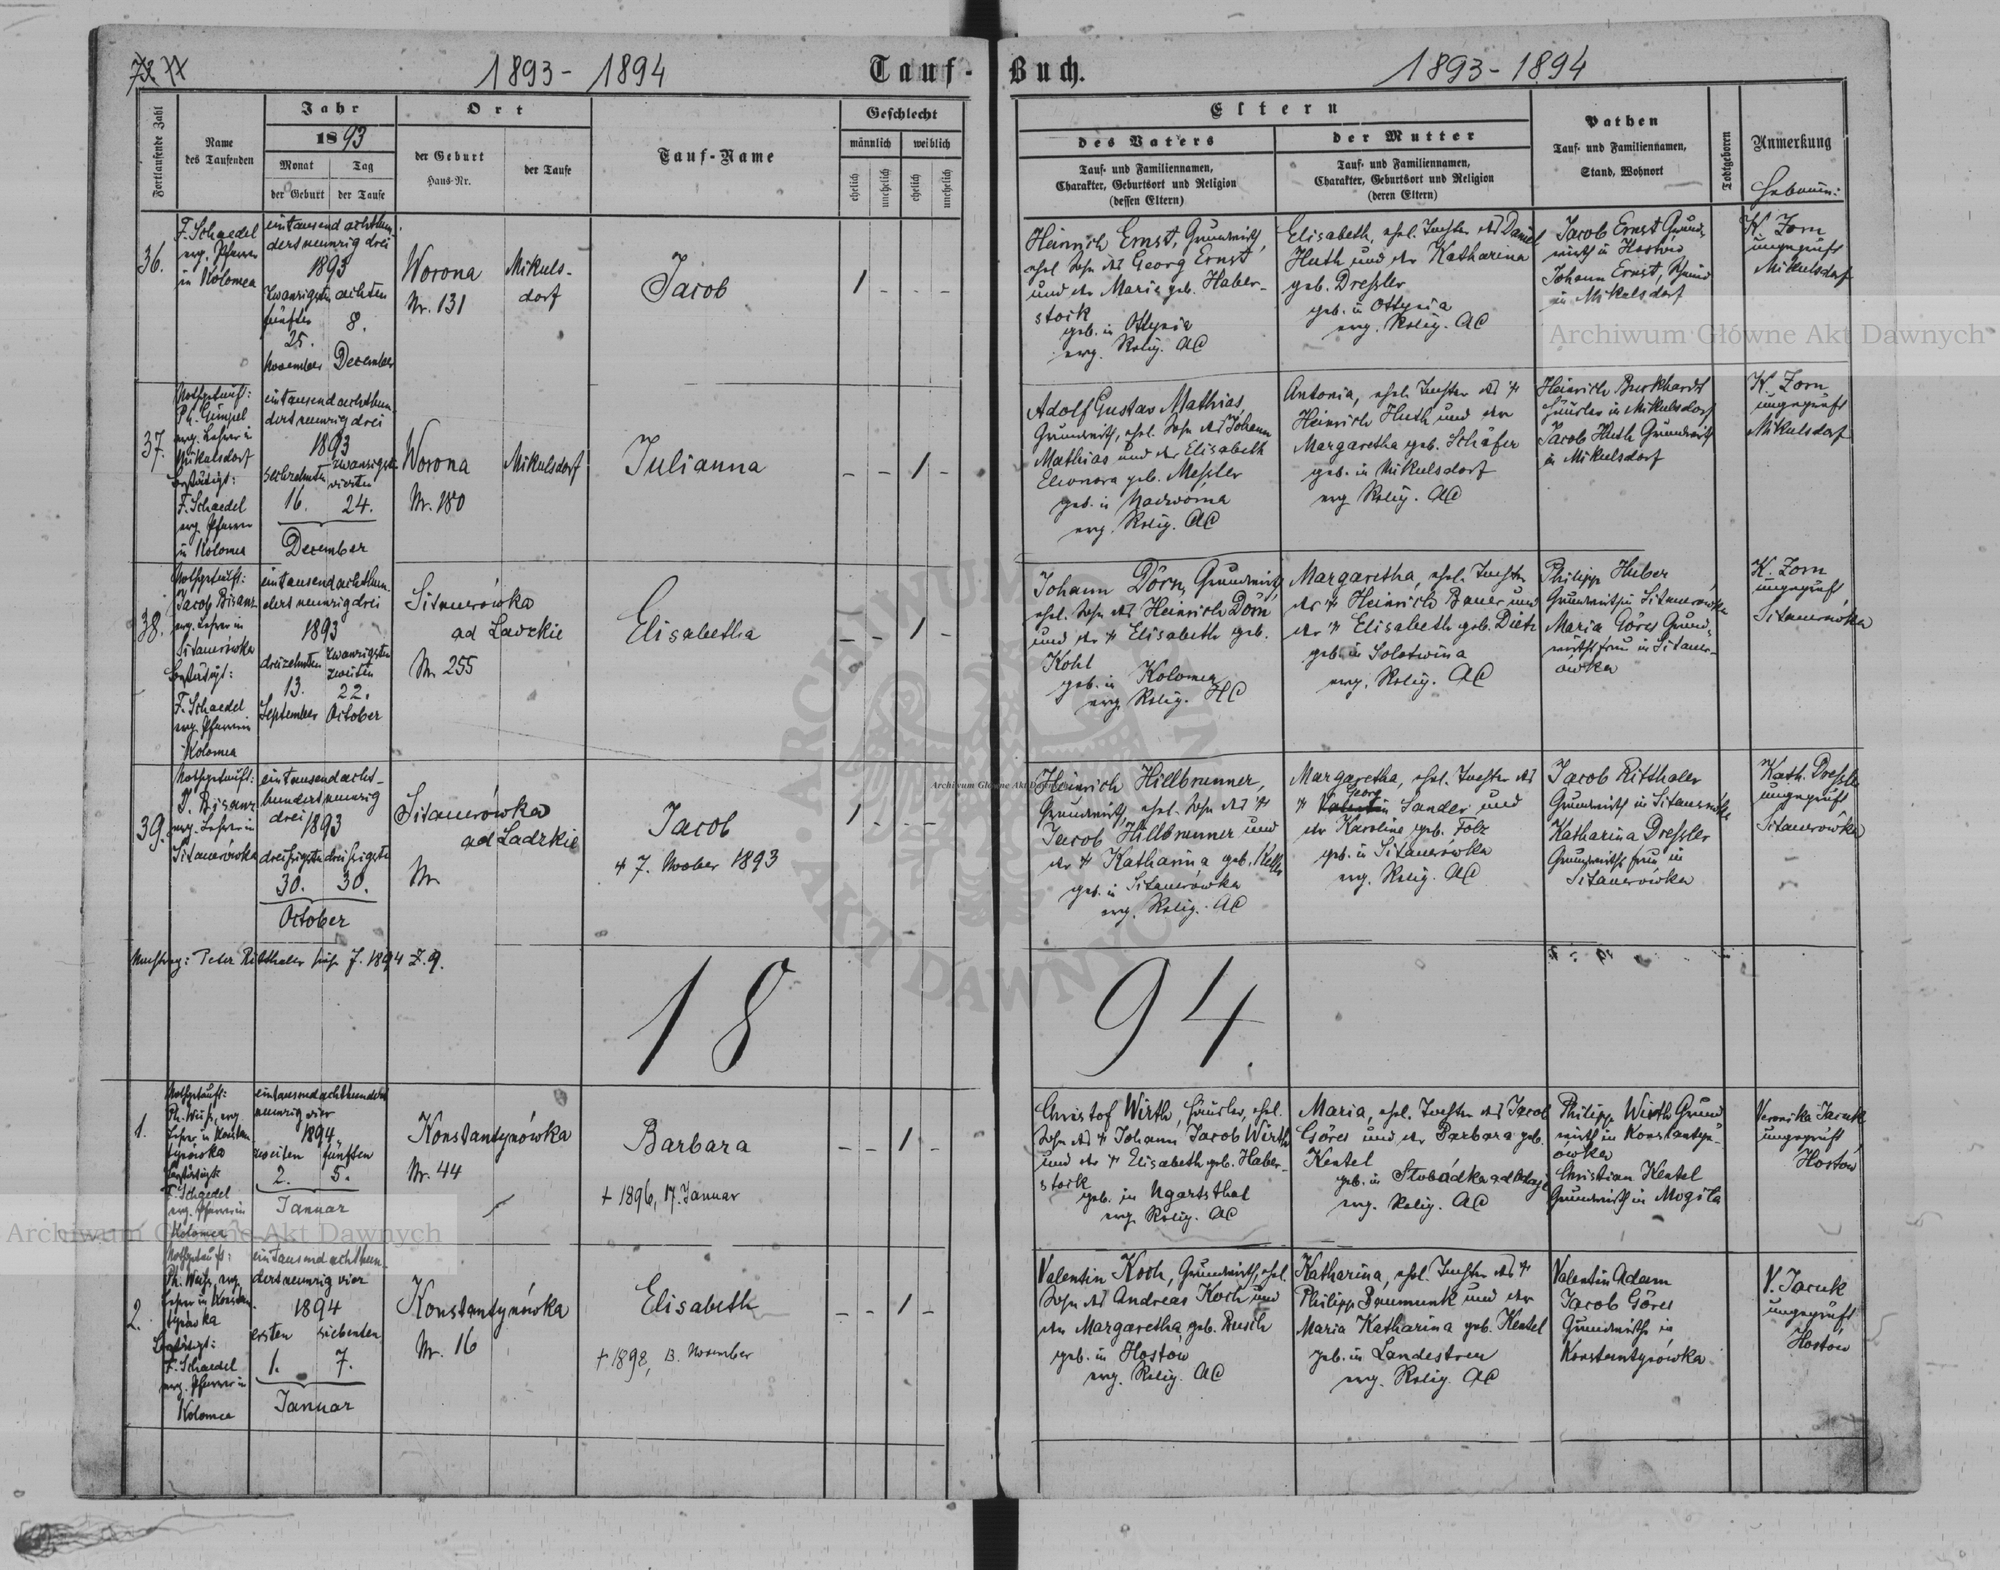 1893 - 1894
Tauf-Buch.
1893 - 1894
Fortlaufende Zahl
Name
des Taufenden
Jahr
1893
Monat
Tag
der Geburt
der Taufe
Ort
der Geburt
Haus-Nr.
der Taufe
Tauf-Name
Geschlecht
männlich
weiblich
ehelich
unehelich
ehelich
unehelich
Eltern
des Vaters
Tauf- und Familiennamen,
Charakter, Geburtsort und Religion
(dessen Eltern)
der Mutter
Tauf- und Familiennamen,
Charakter, Geburtsort und Religion
(deren Eltern)
Pathen
Tauf- und Familiennamen,
Stand, Wohnort
Todtgeboren
Anmerkung
36.
F. Schaedel
evg. Pfarrer
in Kolomea
eintausend achthun-
dert neunzig drei
1893
zwanzigsten achten
fünften 8.
25.
November December
Worona
Nr. 131
Mikuls-
dorf
Jacob
1 - - -
Heinrich Ernst, Grundwirth,
ehel. Sohn des Georg Ernst
und der Maria geb. Haber-
stock
geb. in Ottynia
evg. Relig. AC
Elisabeth, ehel. Tochter des Daniel
Huth und der Katharina
geb. Dreßler
geb. in Ottynia
evg. Relig. AC
Jacob Ernst Grund-
wirth in Hostów
Johann Ernst,
in Mikulsdorf
K. Zorn
ungeprüft
Mikulsdorf
37.
Nothgetauft:
Ph. Gimpel
evg. Lehrer in
Mikulsdorf
Bestätigt:
F. Schaedel
evg. Pfarrer
in Kolomea
eintausend achthun-
dert neunzig drei
1893
sechzehnten zwanzigst
vierten
16. 24.
December
Worona
Nr. 180
Mikulsdorf
Julianna
- - 1 -
Adolf Gustav Mathias
Grundwirth, ehel. Sohn des Johann
Mathias und der Elisabeth
Eleonora geb. Meßler
geb. in Nadwórna
evg. Relig. AC
Antonia, ehel. Tochter des ✝
Heinrich Huth und der
Margaretha geb. Schäfer
geb. in Mikulsdorf
evg. Relig. AC
Heinrich Burkhardt
Häusler in Mikulsdorf
Jacob Huth Grundwirth
in Mikulsdorf
K. Zorn
ungeprüft
Mikulsdorf
38.
Nothgetauft:
Jacob Bisanz
evg. Lehrer in
Sitauerówka
Bestätigt:
F. Schaedel
evg. Pfarrer in
Kolomea
eintausend achthun-
dert neunzig drei
1893
dreizehnten zwanzigsten
zweiten
13. 22.
September October
Sitauerówka
ad Ladzkie
Nr. 255
Elisabetha
- - 1 -
Johann Dörn, Grundwirth,
ehel. Sohn des Heinrich Dörn
und der ✝ Elisabeth geb.
Kohl
geb. in Kolomea
evg. Relig. HC
Margaretha, ehel. Tochter
des ✝ Heinrich Bauer und
der ✝ Elisabeth geb. Dietz
geb. in Solotwina
evg. Relig. AC
Philipp Huber
Grundwirth in Sitauerówka
Maria Göres Grund-
wirthsfrau in Sitauer-
ówka
K. Zorn
ungeprüft
Sitauerówka
39.
Nothgetauft:
J. Bisanz
evg. Lehrer in
Sitauerówka
eintausend acht-
hundert neunzig
drei 1893
dreißigsten dreißigsten
30. 30.
October
Sitauerówka
ad Ladzkie
Nr.
Jacob
✝ 7. November 1893
1 - - -
Heinrich Hillbrunner,
Grundwirth, ehel. Sohn des ✝
Jacob Hillbrunner und
der ✝ Katharina geb. Keller
geb. in Sitauerówka
evg. Relig. AC
Margaretha, ehel. Tochter des
Georg
✝ Valentin Sander und
der Karoline geb. Folz
geb. in Sitauerówka
evg. Relig. AC
Jacob Ritthaler
Grundwirth in Sitauerówka
Katharina Dreßler
Grundwirthsfrau in
Sitauerówka
Kath. Dreßler
ungeprüft
Sitauerówka
Nachtrag: Peter Ritthaler siehe J. 1894 Z. 9.
1894.
1.
Nothgetauft:
Ph. Weiß, evg.
Lehrer in Konstan-
tynówka
Bestätigt:
F. Schaedel
evg. Pfarrer in
Kolomea
eintausend achthundert
neunzig vier
1894
zweiten fünften
2. 5.
Januar
Konstantynówka
Nr. 44
Barbara
✝ 1896, 17. Januar
- - 1 -
Christof Wirth, Häusler, ehel.
Sohn des ✝ Johann Jacob Wirth
und der ✝ Elisabeth geb. Haber-
stock
geb. in Ugartsthal
evg. Relig. AC
Maria, ehel. Tochter des Jacob
Göres und der Barbara geb.
Kentel
geb. in Slobódka ad
evg. Relig. AC
Philipp Wirth Grund-
wirth in Konstantyn-
ówka
Christian Kentel
Grundwirth in Mogila
Veronika Jacuk
ungeprüft
Hostów
2.
Nothgetauft:
Ph. Weiß, evg.
Lehrer in Konstan-
tynówka
Bestätigt:
F. Schaedel
evg. Pfarrer in
Kolomea
eintausend achthun-
dert neunzig vier
1894
ersten siebenten
1. 7.
Januar
Konstantynówka
Nr. 16
Elisabeth
✝ 1898, 13. November
- - 1 -
Valentin Koch, Grundwirth, ehel.
Sohn des Andreas Koch und
der Margaretha geb. Busch
geb. in Hostow
evg. Relig. AC
Katharina, ehel. Tochter des ✝
Philipp Baumunk und der
Maria Katharina geb. Kentel
geb. in Landestreu
evg. Relig. AC
Valentin Adam
Jacob Göres
Grundwirthe in
Konstantynówka
V. Jacuk
ungeprüft
Hostów
Archiwum Główne Akt Dawnych
Archiwum Główne Akt Dawnych
Archiwum Główne Akt Dawnych
ARCHIWUM GŁÓWNE AKT DAWNYCH